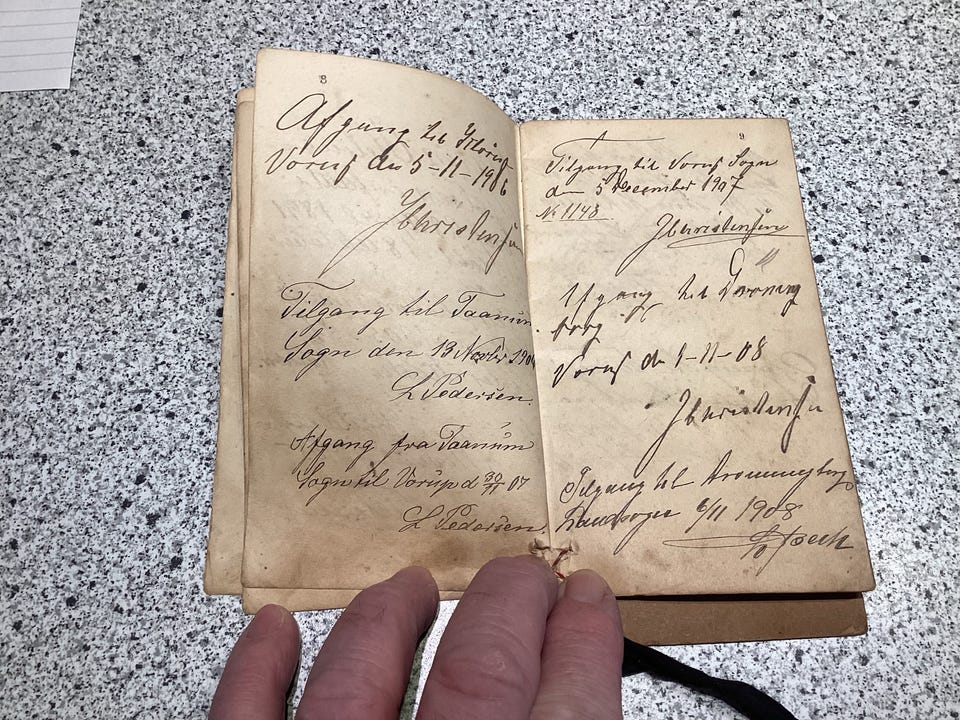 8
Afgang til
Vorup den 5-11-1906
J Christensen
Tilgang til Taanum
Sogn den 13 Novbr 190
L Pedersen.
Afgang fra Taanum
Sogn til Vorup d 30/11 07
L Pedersen.
9
Tilgang til Vorup Sogn
d 5 December 1907
№ 1148.
J Christensen
Afgang til Dronning
borg
Vorup d 1-11-08
J Christensen
Tilgang til Dronningborg
6/11 1908